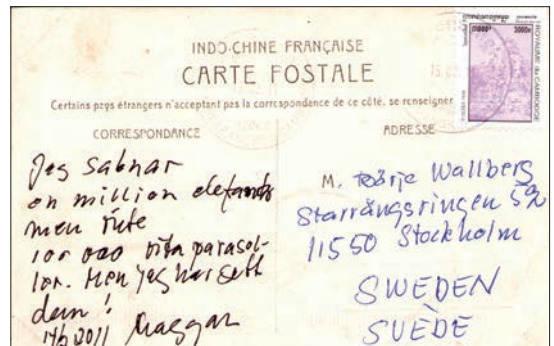 INDO-CHINE FRANÇAISE
CARTE POSTALE
Certains pays étrangers n'acceptant pas la correspondance de ce côté, se renseigner
CORRESPONDANCE
ADRESSE
Jag saknar
en million elefanter
men inte
100 000 vita parasol-
ler. Men jag har sett
dem!
14/2 2011 Maggan
M. Börje Wallberg
Starrängsringen
115 50 Stockholm
SWEDEN
SUÈDE
3000R
ROYAUME DU CAMBODGE